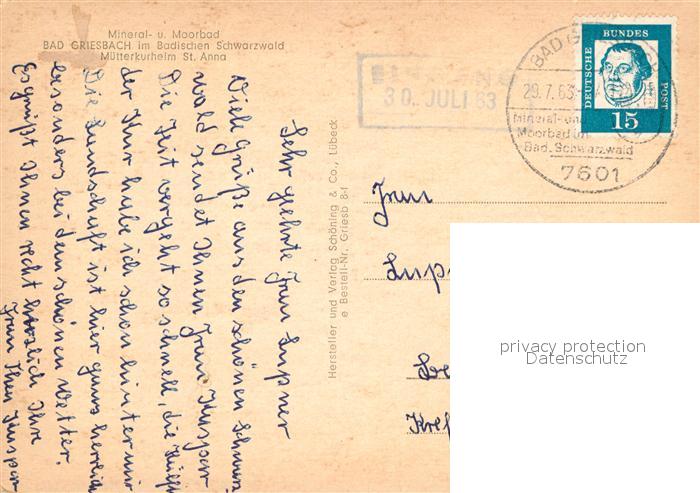 Mineral- u. Moorbad
BAD GRIESBACH im Badischen Schwarzwald
Mütterkurheim St. Anna
Sehr geehrte Frau Lupner
Viele Grüße aus dem schönen Schwarz
wald sendet Ihnen Frau Kusper
Die Zeit vergeht so schnell, die Hälfte
der Kur habe ich schon hinter mir
Die Landschaft ist hier ganz herrlich
besonders bei dem schönen Wetter.
Es grüßt Ihnen recht herzlich Ihre
Frau Thea Kusper
Hersteller und Verlag Schöning & Co., Lübeck
e Bestell-Nr. Griesb 8-f
30. JULI 63
BAD
29.7.63
Mineral- und
Moorbad im
Bad. Schwarzwald
7601
DEUTSCHE
BUNDES
POST
15
Frau
privacy protection
Datenschutz